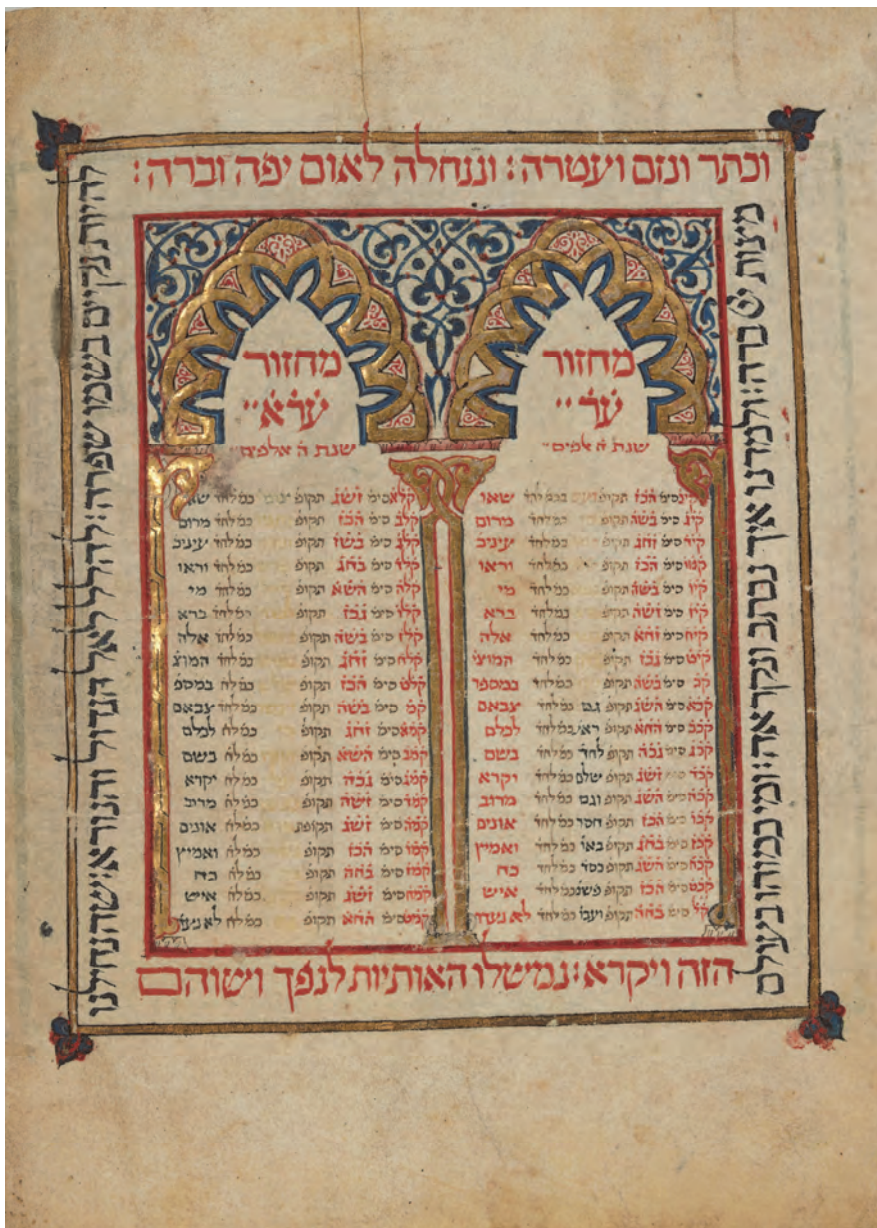 וכתר ונזם ועטרה: וננחלה לאום יפה וברה:
ולמדנו איך נכתב ונקראה: ומי כמוהו
הזה ויקרא: נמשלו האותיות לנפך ושוהם
להלל לאל הגדול והנורא: שהנחילנו
מחזור
ער
שנת ה אלפים
קיב סימ הכז תקופ שאו
קיג סימ בשה תקופ כמלחד מרום
קיד סימ זחג תקופ כמלחד עיניכ
קטו סימ הכז תקופ כמלחד וראו
קיו סימ בשה תקופ כמלחד מי
קיז סימ זשה תקופ כמלחד ברא
קיח סימ זחא תקופ כמלחד אלה
קיט סימ גכז תקופ כמלחד המוצי
קכ סימ בשה תקופ כמלחד במספר
קכא סימ השג תקופ גם כמלחד צבאם
קכב סימ החא תקופ ראי כמלחד לכלם
קכג סימ גכה תקופ לחד כמלחד בשם
קכד זשג תקופ שלם כמלחד יקרא
קכה סימ השג תקופ וגם כמלחד מרוב
קכו סימ הכז תקופ חסר כמלחד אונים
קכז סימ בחג תקופ באו כמלחד ואמיץ
קכח סימ השג תקופ כמלחד כח
קכט סימ הכז תקופ כמלחד איש
קל סימ בחה תקופ כמלחד לא נעדר
מחזור
ערא
שנת ה אלפים
קלא סימ זשג תקופ כמלחד
קלב סימ הכז תקופ כמלחד מרום
קלג סימ בשז תקופ כמלחד עיניכ
קלד סימ בחג תקופ כמלחד וראו
קלה סימ השא תקופ כמלחד מי
קלו סימ גכז תקופ כמלחד ברא
קלז סימ בשה תקופ כמלחד אלה
קלח סימ זחג תקופ כמלחד המוצי
קלט סימ הכז תקופ כמלח במספ
קמ סימ בשה תקופ כמלחד צבאם
קמא סימ זחג תקופ כמלח לכלם
קמב סימ השא תקופ כמלח בשם
קמג סימ גכה תקופ כמלח יקרא
קמד סימ זשה תקופ כמלח מרוב
קמה סימ זשג תקופת כמלח אונים
קמו סימ הכז תקופ כמלח ואמיץ
קמז סימ בחה תקופ כמלח כח
קמח סימ זשג תקופ כמלח איש
קמט סימ החא תקופ כמלח לא נעדר